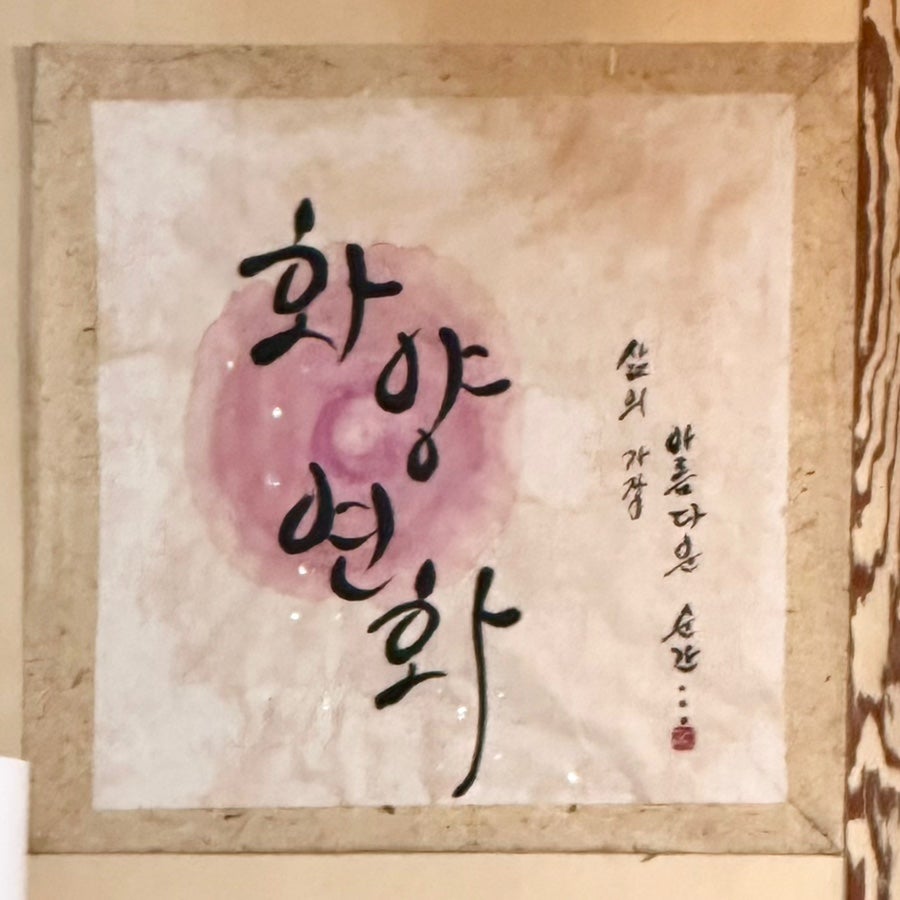 화양연화
삶의 가장
아름다운 순간...